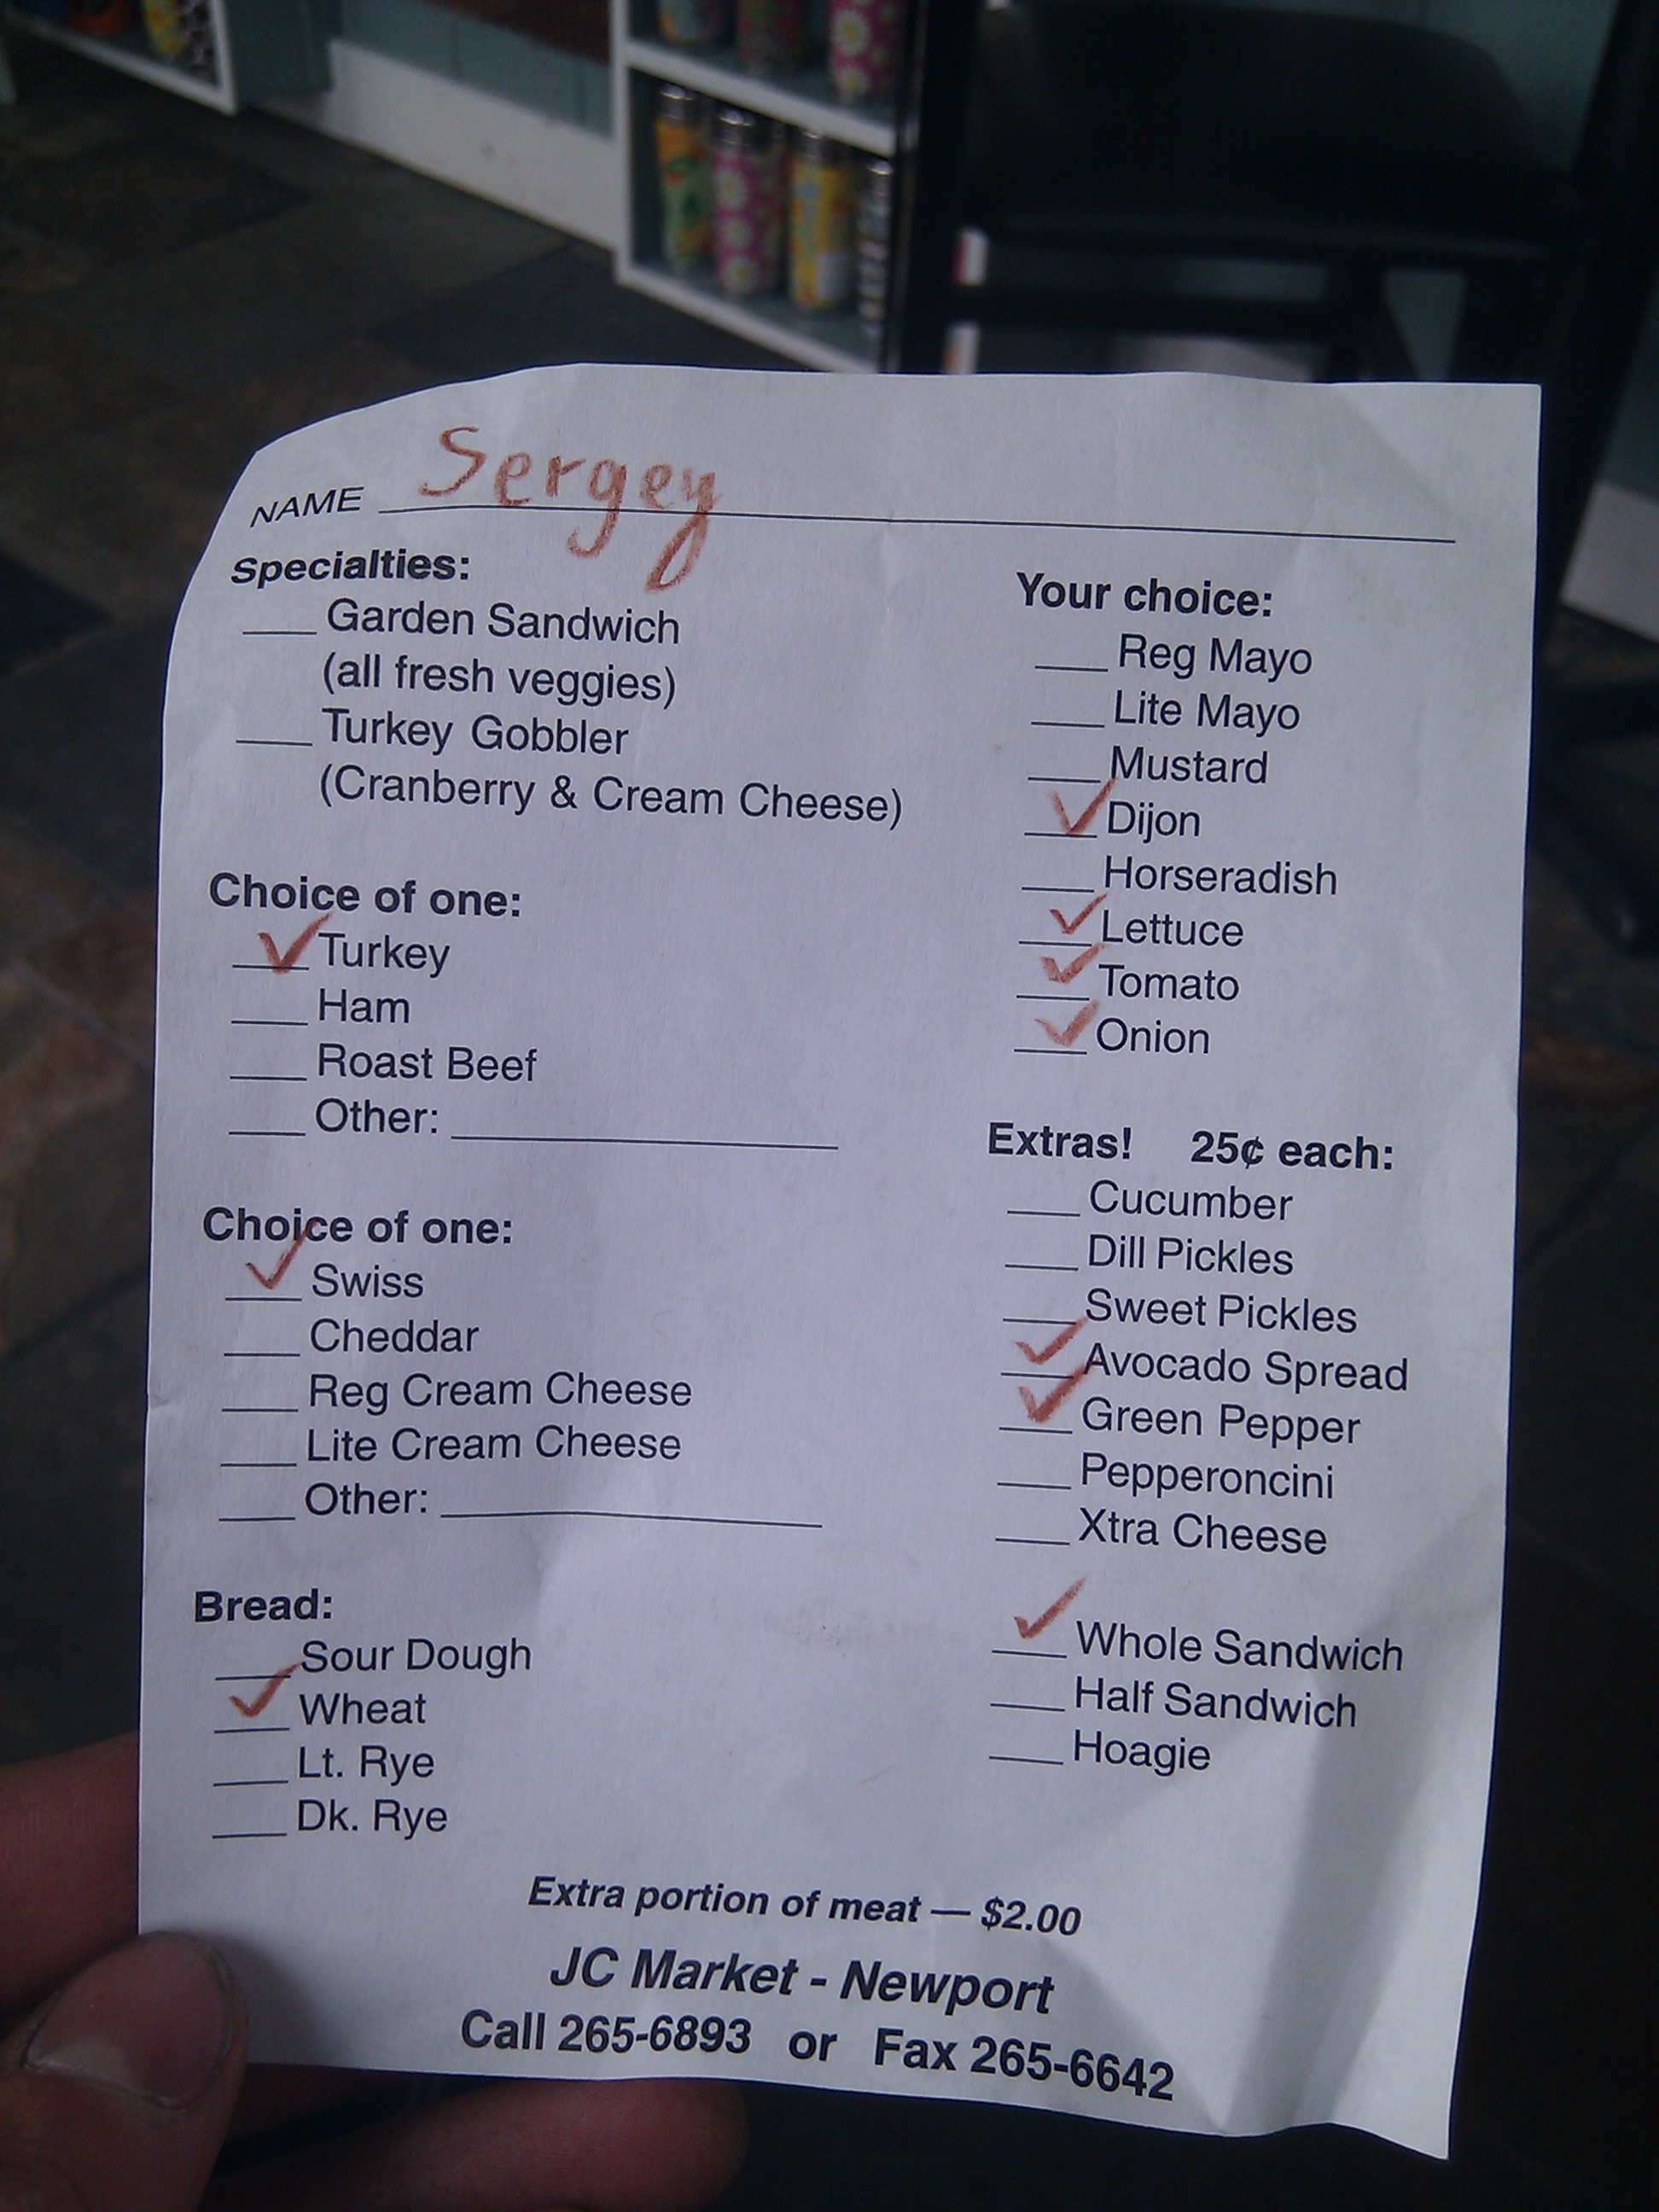 NAME Sergey
Specialties:
___ Garden Sandwich
(all fresh veggies)
___ Turkey Gobbler
(Cranberry & Cream Cheese)
Choice of one:
✓ Turkey
___ Ham
___ Roast Beef
___ Other: ___
Choice of one:
✓ Swiss
___ Cheddar
___ Reg Cream Cheese
___ Lite Cream Cheese
___ Other: ___
Bread:
___ Sour Dough
✓ Wheat
___ Lt. Rye
___ Dk. Rye
Your choice:
___ Reg Mayo
___ Lite Mayo
___ Mustard
✓ Dijon
___ Horseradish
✓ Lettuce
✓ Tomato
✓ Onion
Extras! 25¢ each:
___ Cucumber
___ Dill Pickles
___ Sweet Pickles
✓ Avocado Spread
✓ Green Pepper
___ Pepperoncini
___ Xtra Cheese
✓ Whole Sandwich
___ Half Sandwich
___ Hoagie
Extra portion of meat — $2.00
JC Market - Newport
Call 265-6893 or Fax 265-6642